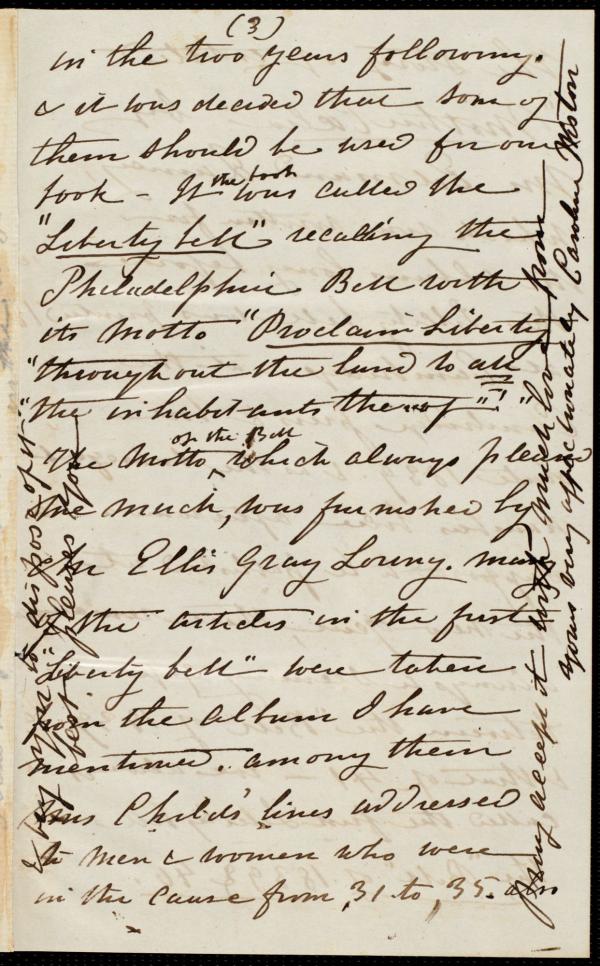 (3)
in the two years following.
& it was decided that some of
them should be used for our
book - It the book was called the
"Liberty bell" recalling the
Philadelphia Bell with
its Motto "Proclaim Liberty
"throughout the land to all
"the inhabitants thereof"! "
The Motto of the Bell which always pleased
me much, was furnished by
Ellis Gray Loring. many
of the articles in the first
"Liberty bell" were taken
from the Album I have
mentioned. among them
Mrs Child's lines addressed
to men & women who were
in the cause from, 31. to, 35. also
& beg you to dispose of it
as best pleases you
Pray accept it with much love from
Yours very affectionately Caroline Weston